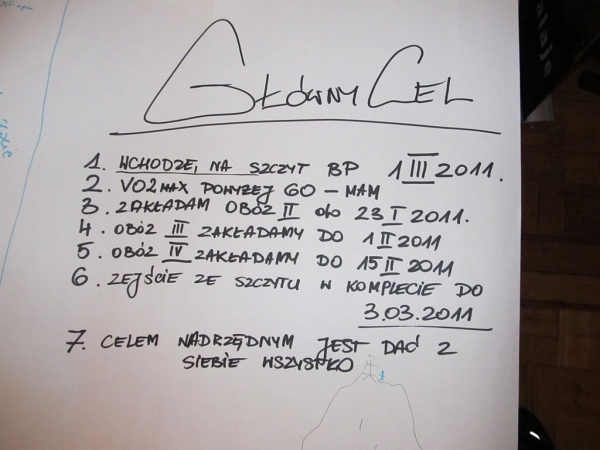 GŁÓWNY CEL
1. WCHODZĘ NA SZCZYT BP 1 III 2011.
2. VO2MAX POWYŻEJ 60 - MAM
3. ZAKŁADAM OBÓZ II do 23 I 2011.
4. OBÓZ III ZAKŁADAMY DO 1 II 2011
5. OBÓZ IV ZAKŁADAMY DO 15 II 2011
6. ZEJŚCIE ZE SZCZYTU W KOMPLECIE DO
3.03.2011
7. CELEM NADRZĘDNYM JEST DAĆ Z
SIEBIE WSZYSTKO